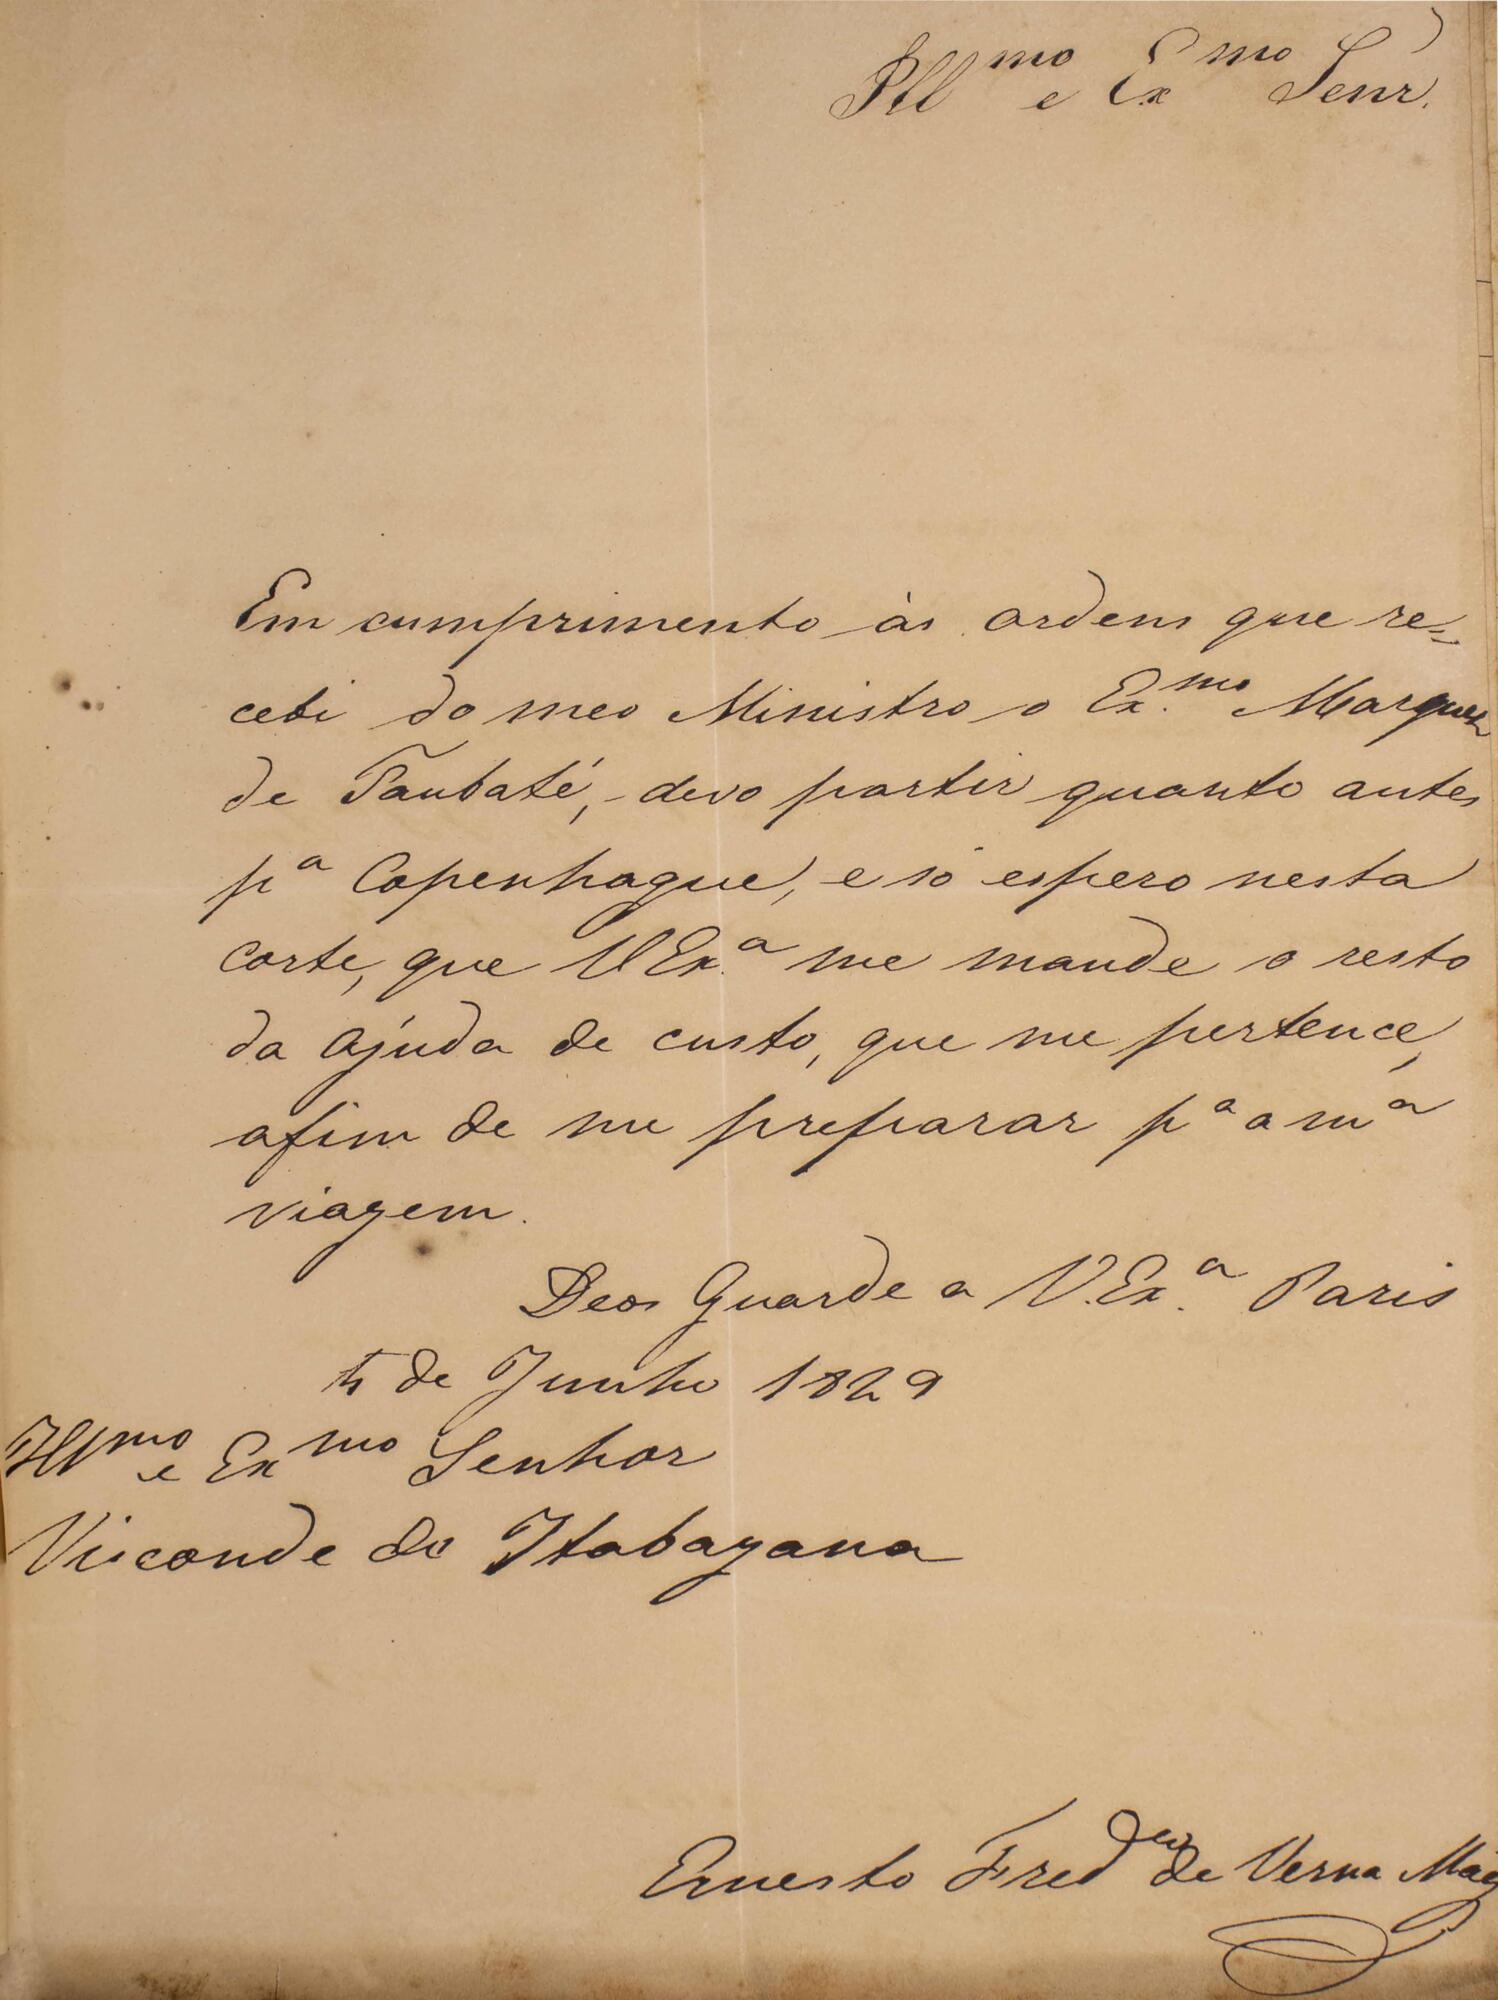 Ill.mo e Ex.mo Senr.
Em cumprimento ás ordens que re=
cebi do meo Ministro o Ex.mo Marquez
de Taubaté, devo partir quanto antes
p.a Copenhague, e só espero nesta
corte, que V Ex.a me mande o resto
da ajuda de custo, que me pertence,
afim de me preparar p.a a m.a
viagem.
Deos Guarde a V. Ex.a Paris
5 de Junho 1829
Ill.mo e Ex.mo Senhor
Visconde de Itabayana
Ernesto Fred.co de Verna Mag